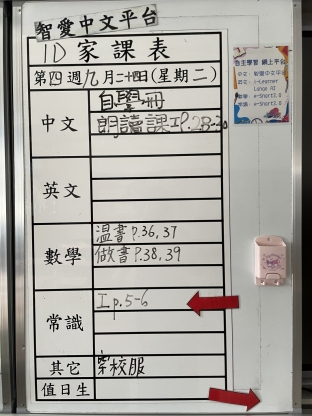 智愛中文平台
1D 家課表
第四週九月二十四(星期二)
中文
自學冊
朗讀課工P.28-30
英文
數學
溫書P.36,37
做書P.38,39
常識
工p.5-6
其它
穿校服
值日生
自主學習 網上平台
智愛中文平台
i-Learner
e-Smart3.0
e-Smart3.0